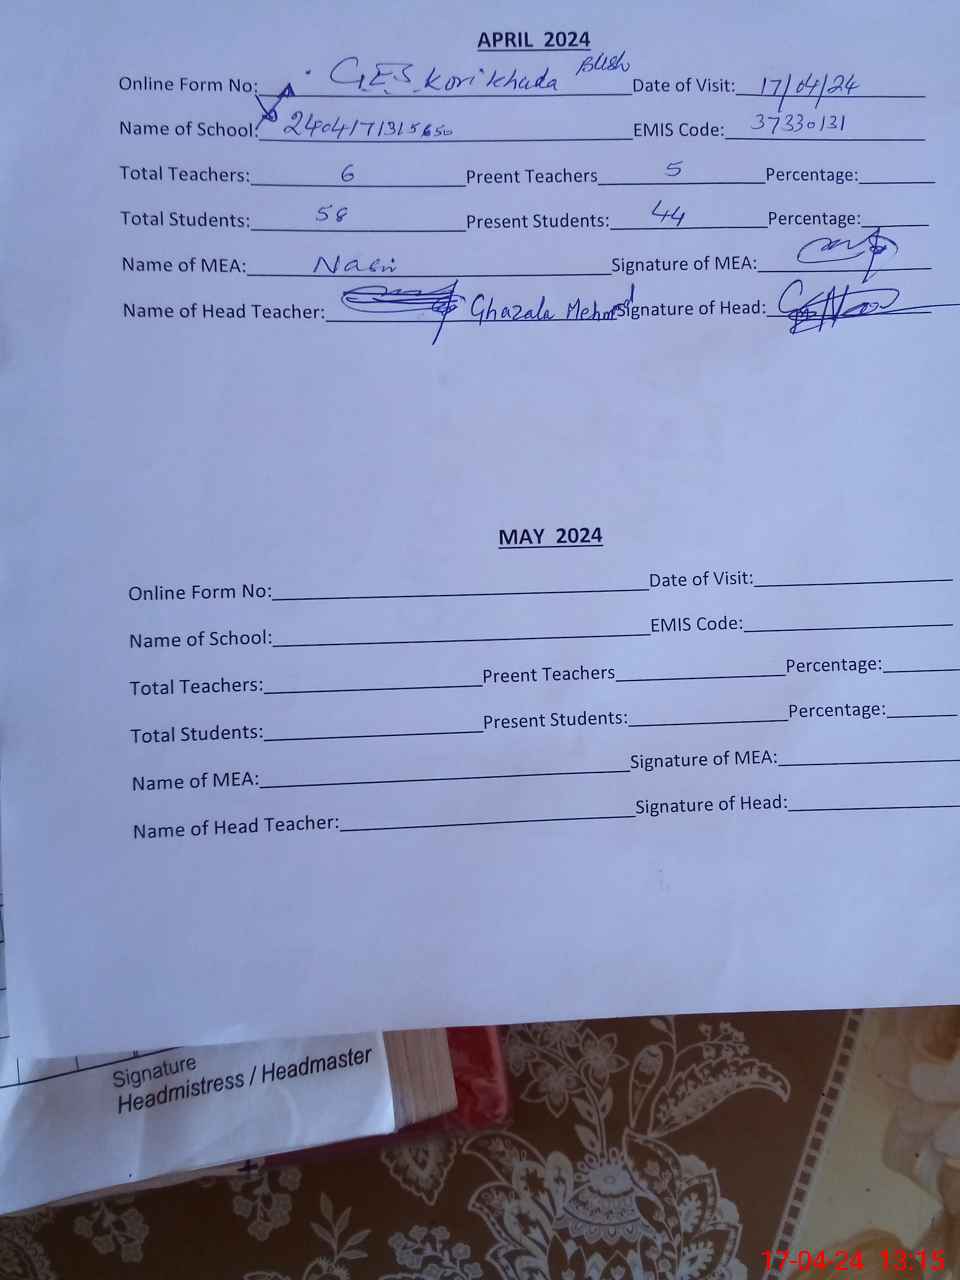 APRIL 2024
Online Form No: G.E.S Kori Khuda Date of Visit: 17/04/24
Name of School: EMIS Code: 37330131
Total Teachers: 6 Preent Teachers 5 Percentage:
Total Students: 58 Present Students: 44 Percentage:
Name of MEA: Signature of MEA:
Name of Head Teacher: Ghazala Signature of Head:
MAY 2024
Online Form No: Date of Visit:
Name of School: EMIS Code:
Total Teachers: Preent Teachers Percentage:
Total Students: Present Students: Percentage:
Name of MEA: Signature of MEA:
Name of Head Teacher: Signature of Head:
Signature
Headmistress / Headmaster
17-04-24 13:15